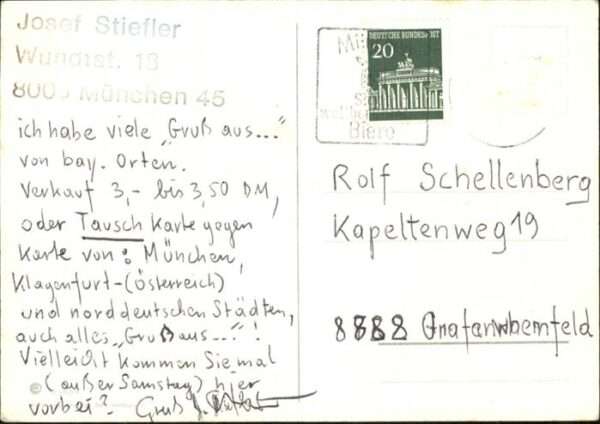 Josef Stiefler
Wundtst. 18
8000 München 45
ich habe viele „Gruß aus..."
von bay. Orten.
Verkauf 3,- bis 3,50 DM,
oder Tausch Karte gegen
Karte von: München,
Klagenfurt-(Österreich)
und norddeutschen Städten,
auch alles „Gruß aus..."!
Vielleicht kommen Sie mal
(außer Samstag) hier
vorbei? Gruß J.
DEUTSCHE BUNDESPOST
20
Biere
Rolf Schellenberg
Kapeltenweg 19
8888